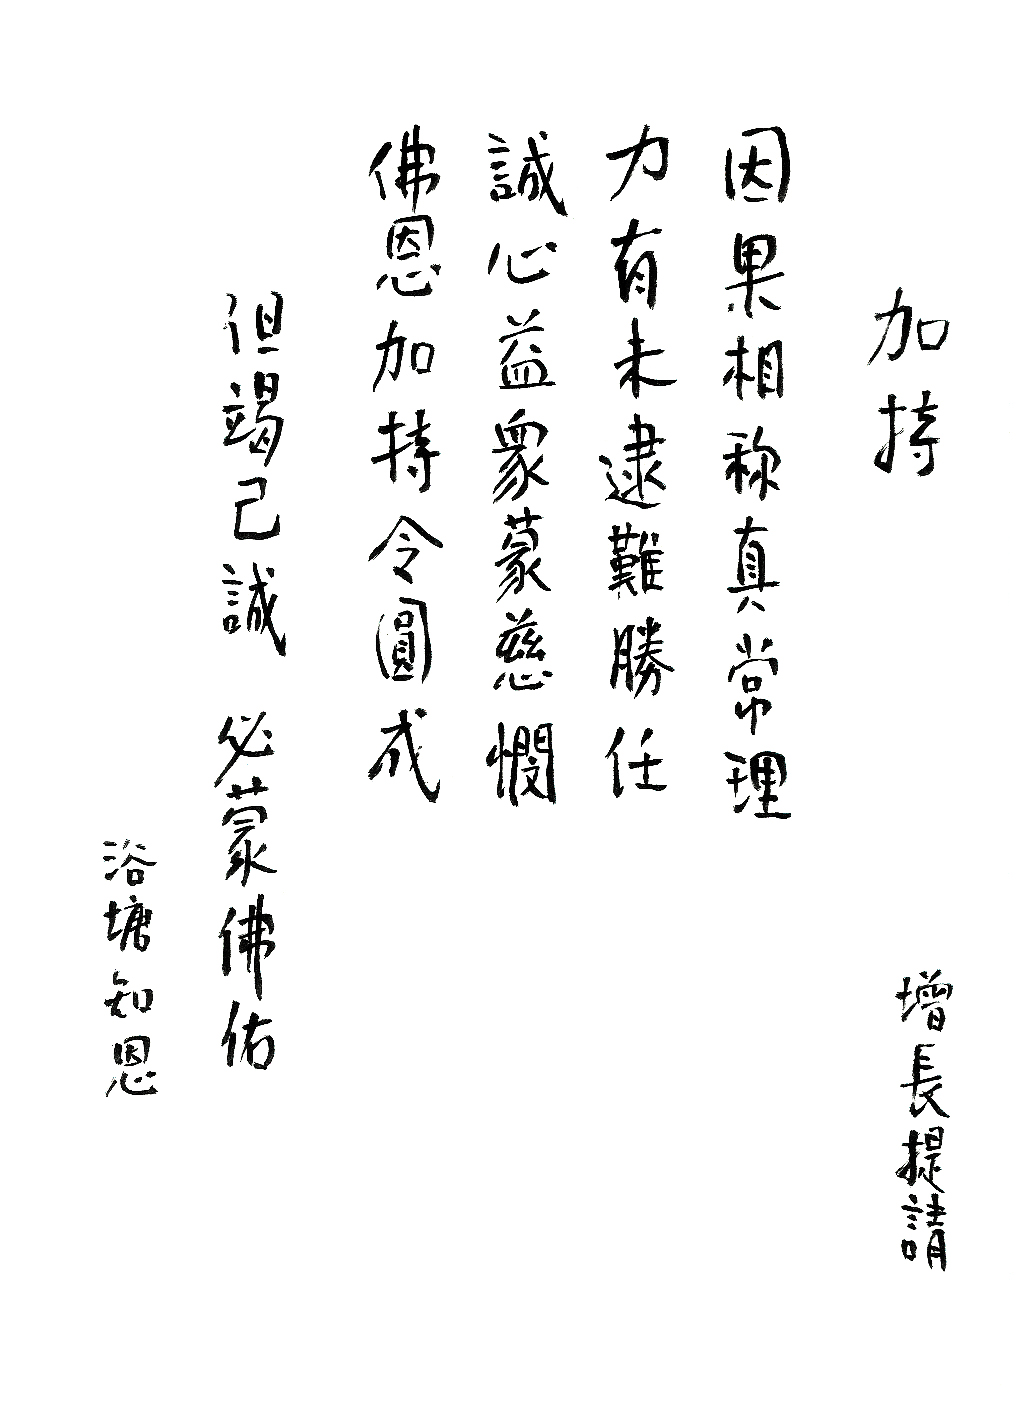 加持
增長提請
因果相称真常理
力有未逮難勝任
誠心益眾蒙慈憫
佛恩加持令圓成
但竭己誠 必蒙佛佑
浴塘知恩